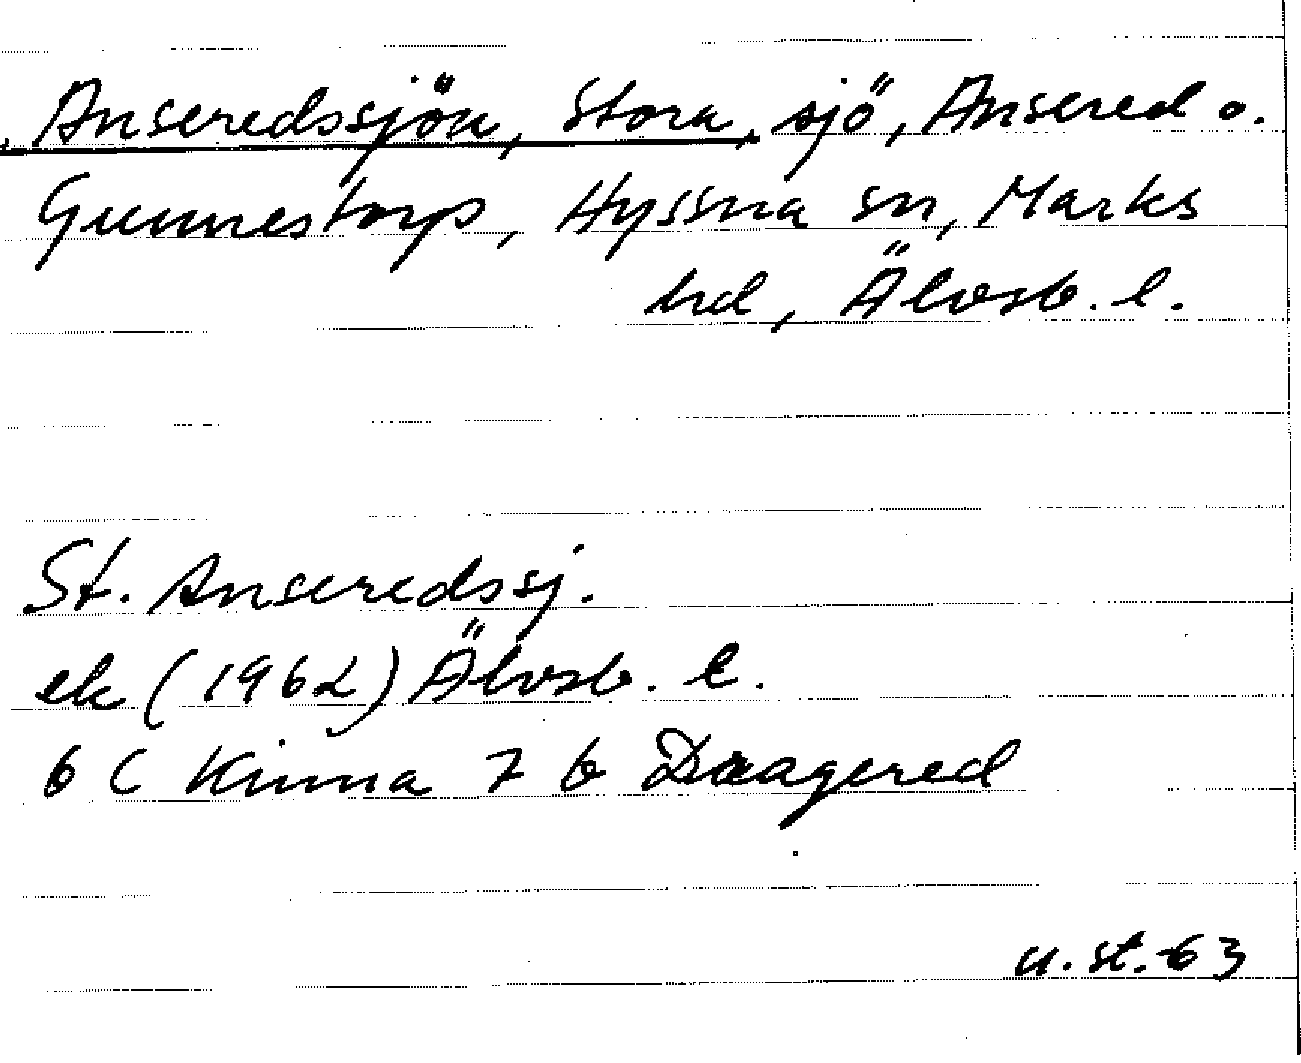 Anseredssjön, Stora, sjö, Ansered o.
Gunnestorp, Hyssna sn, Marks
hd, Älvsb. l.
St. Anseredssj.
ek (1962) Älvsb. l.
6 C Kinna 7 b Draagered
u. st. -63